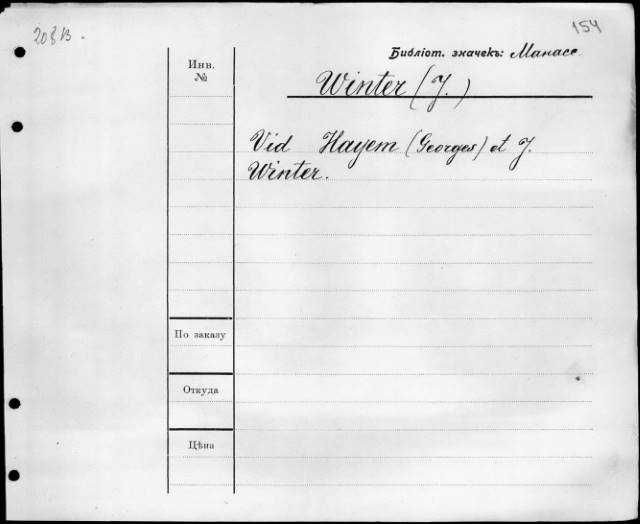 208 B.
154
Библіот. значекъ: Манасе.
Инв.
№
Winter (J.)
Vid Hayem (Georges) et J.
Winter.
По заказу
Откуда
Цѣна